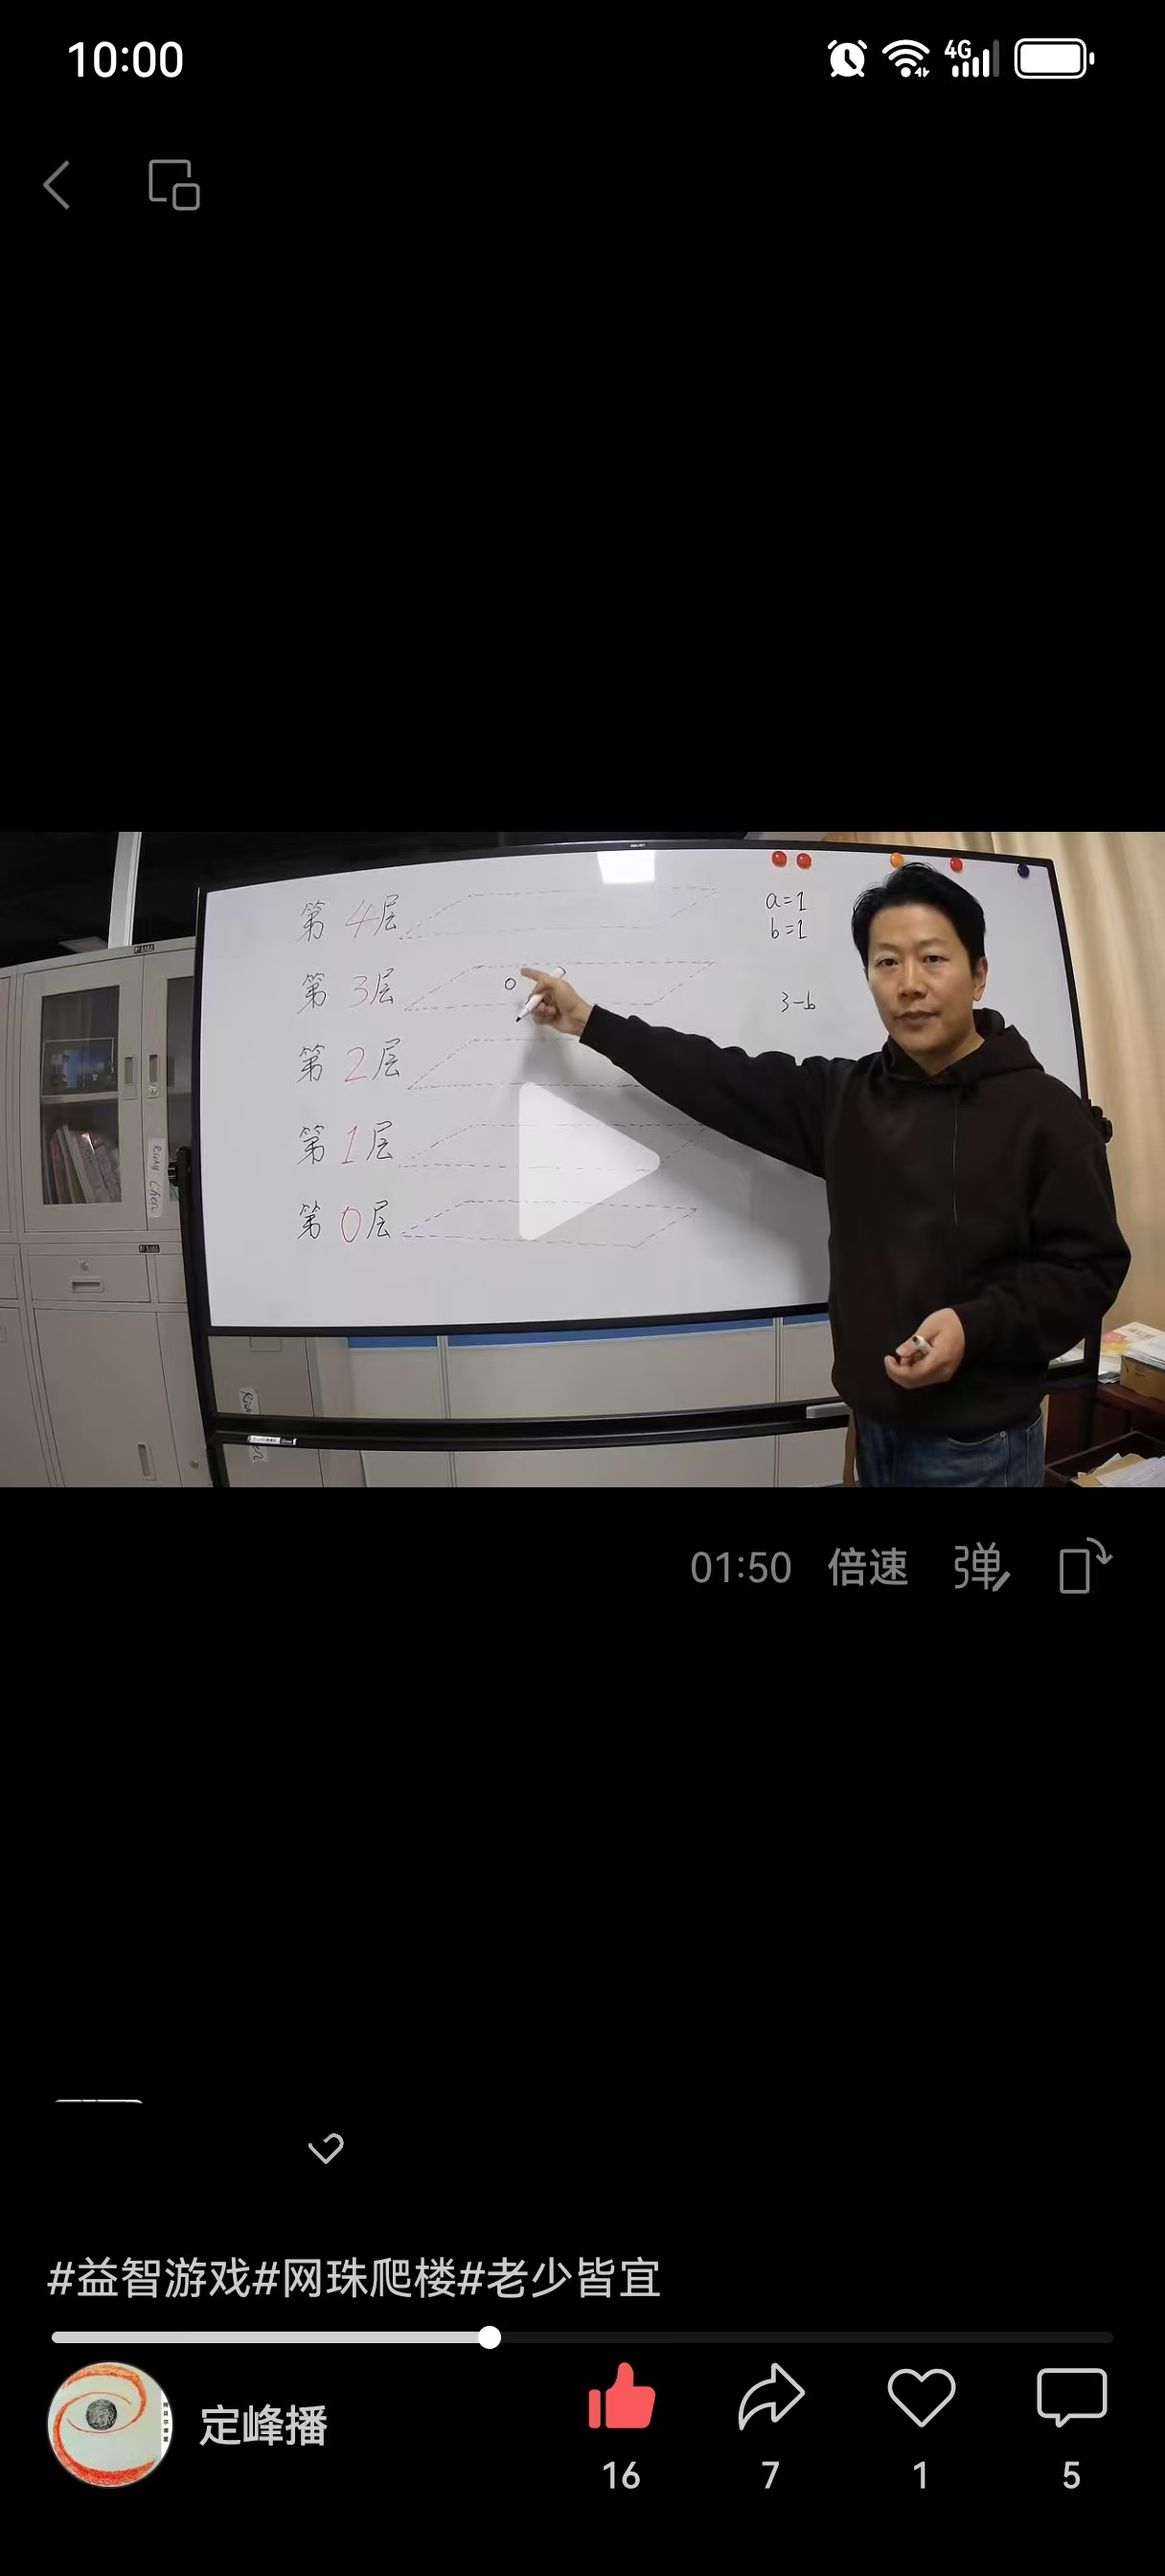 10:00
4G
第4层
a=1
b=1
第3层
3-b
第2层
第1层
第0层
Ricky Chen
01:50 倍速 弹
#益智游戏#网珠爬楼#老少皆宜
定峰播
16
7
1
5